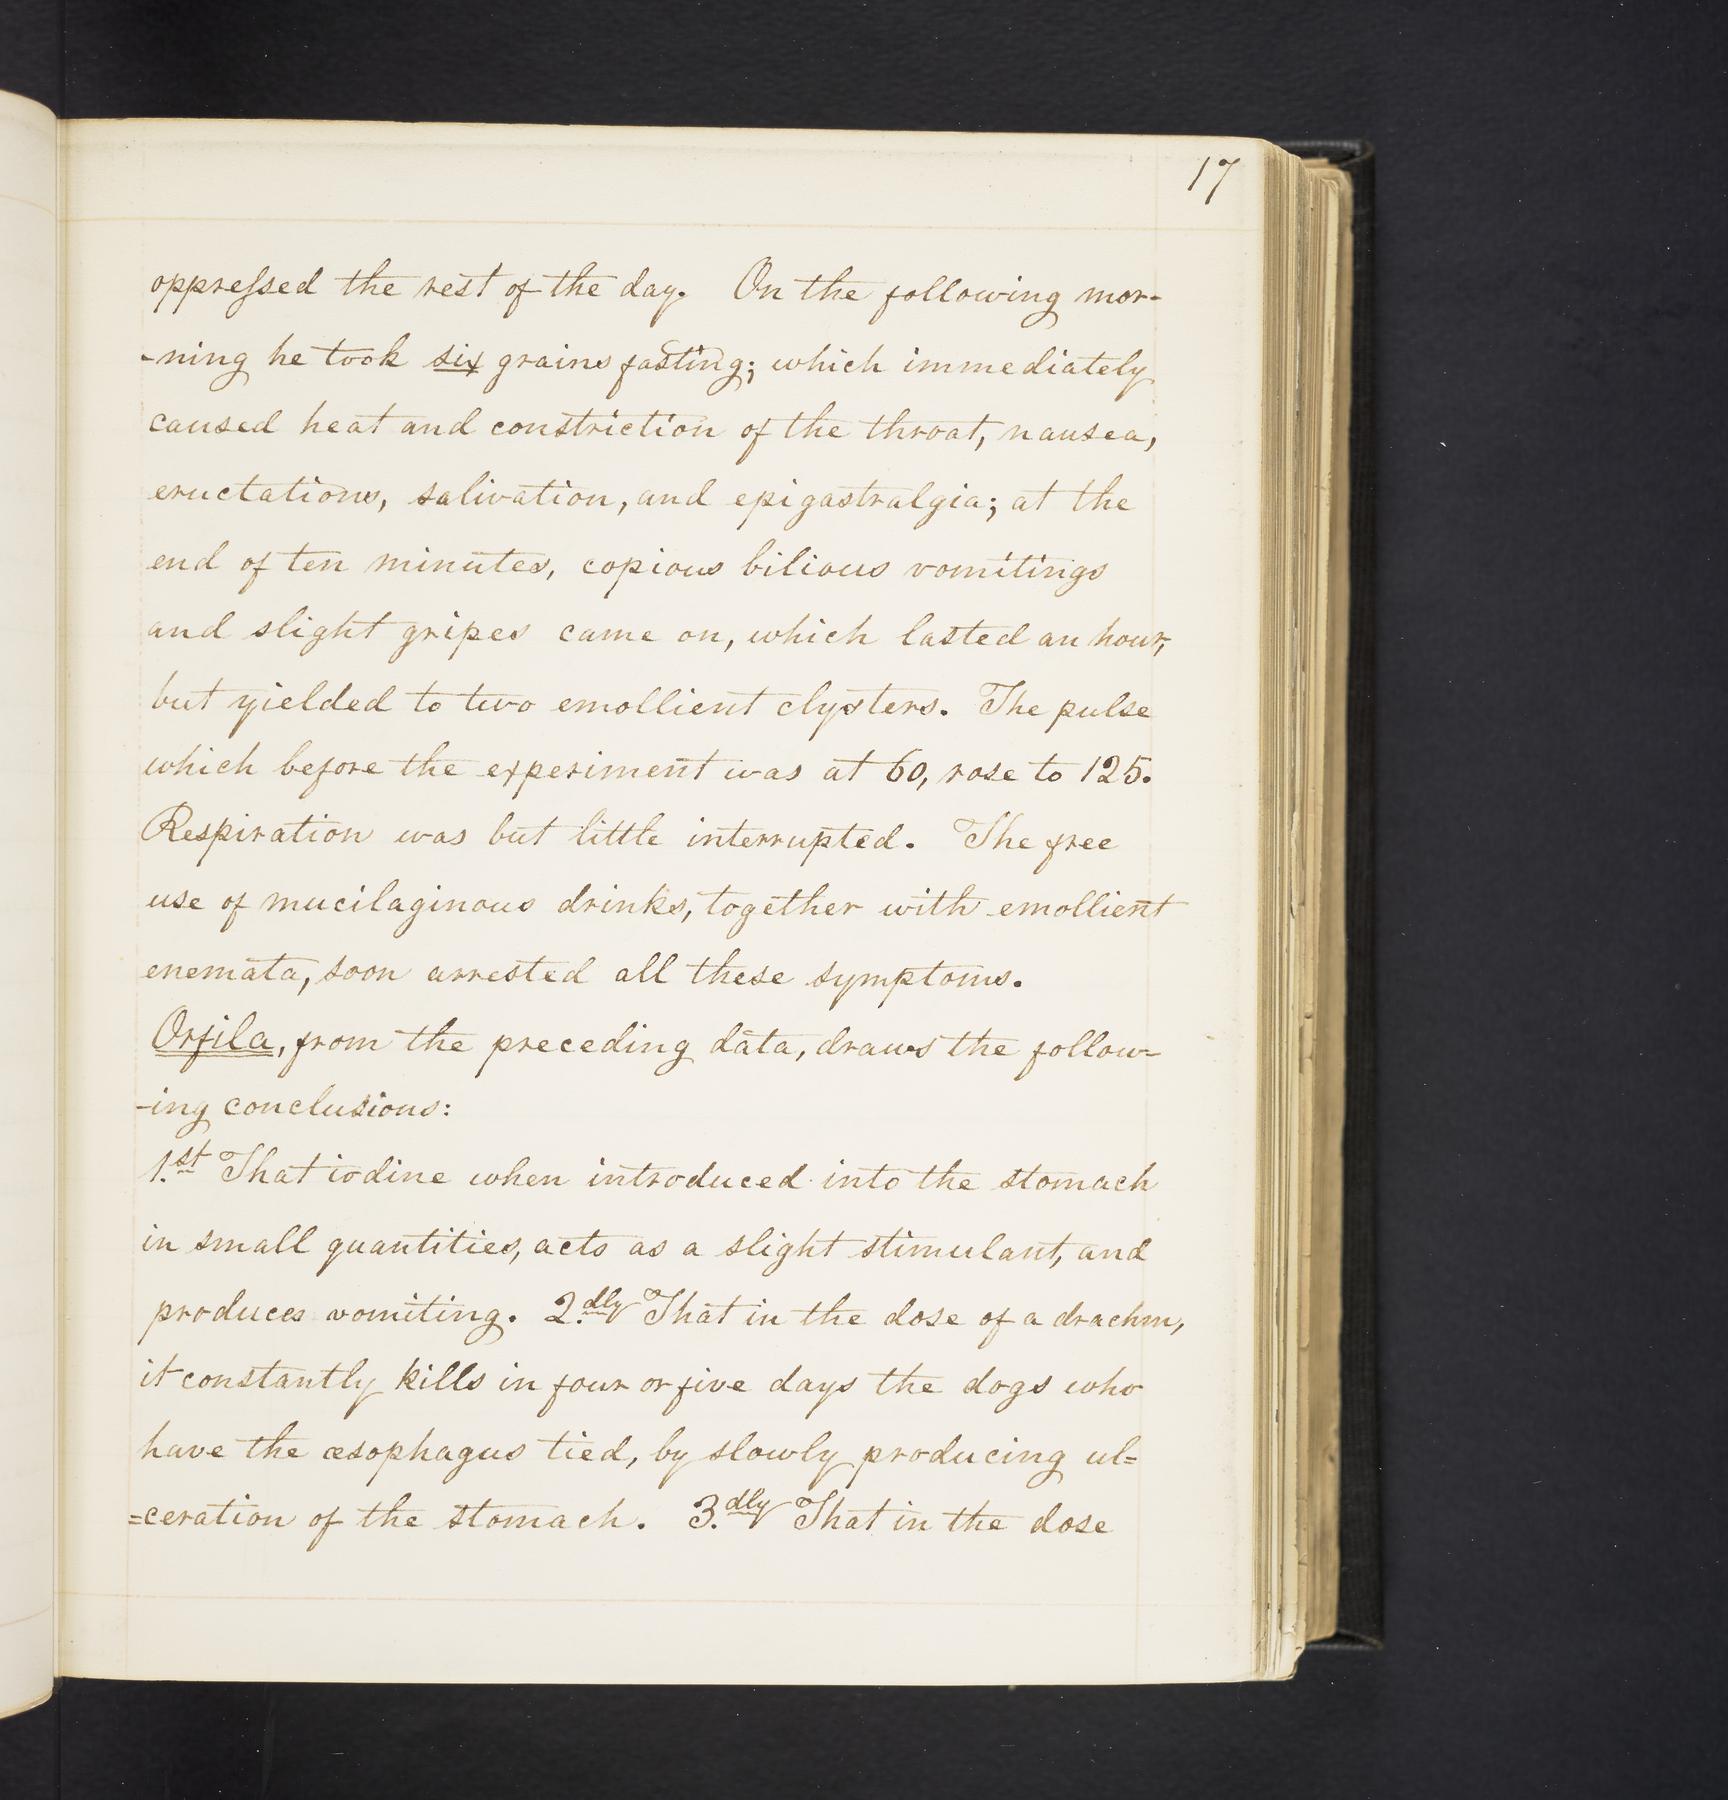 17
oppreſsed the rest of the day. On the following mor-
-ning he took six grains fasting; which immediately
caused heat and constriction of the throat, nausea,
eructations, salivation, and epigastralgia; at the
end of ten minutes, copious bilious vomitings
and slight gripes came on, which lasted an hour,
but yielded to two emollient clysters. The pulse
which before the experiment was at 60, rose to 125.
Respiration was but little interrupted. The free
use of mucilaginous drinks, together with emollient
enemata, soon arrested all these symptoms.
Orfila, from the preceding data, draws the follow-
-ing conclusions:
1.st That iodine when introduced into the stomach
in small quantities, acts as a slight stimulant, and
produces vomiting. 2.dly That in the dose of a drachm,
it constantly kills in four or five days the dogs who
have the œsophagus tied, by slowly producing ul=
=ceration of the stomach. 3.dly That in the dose